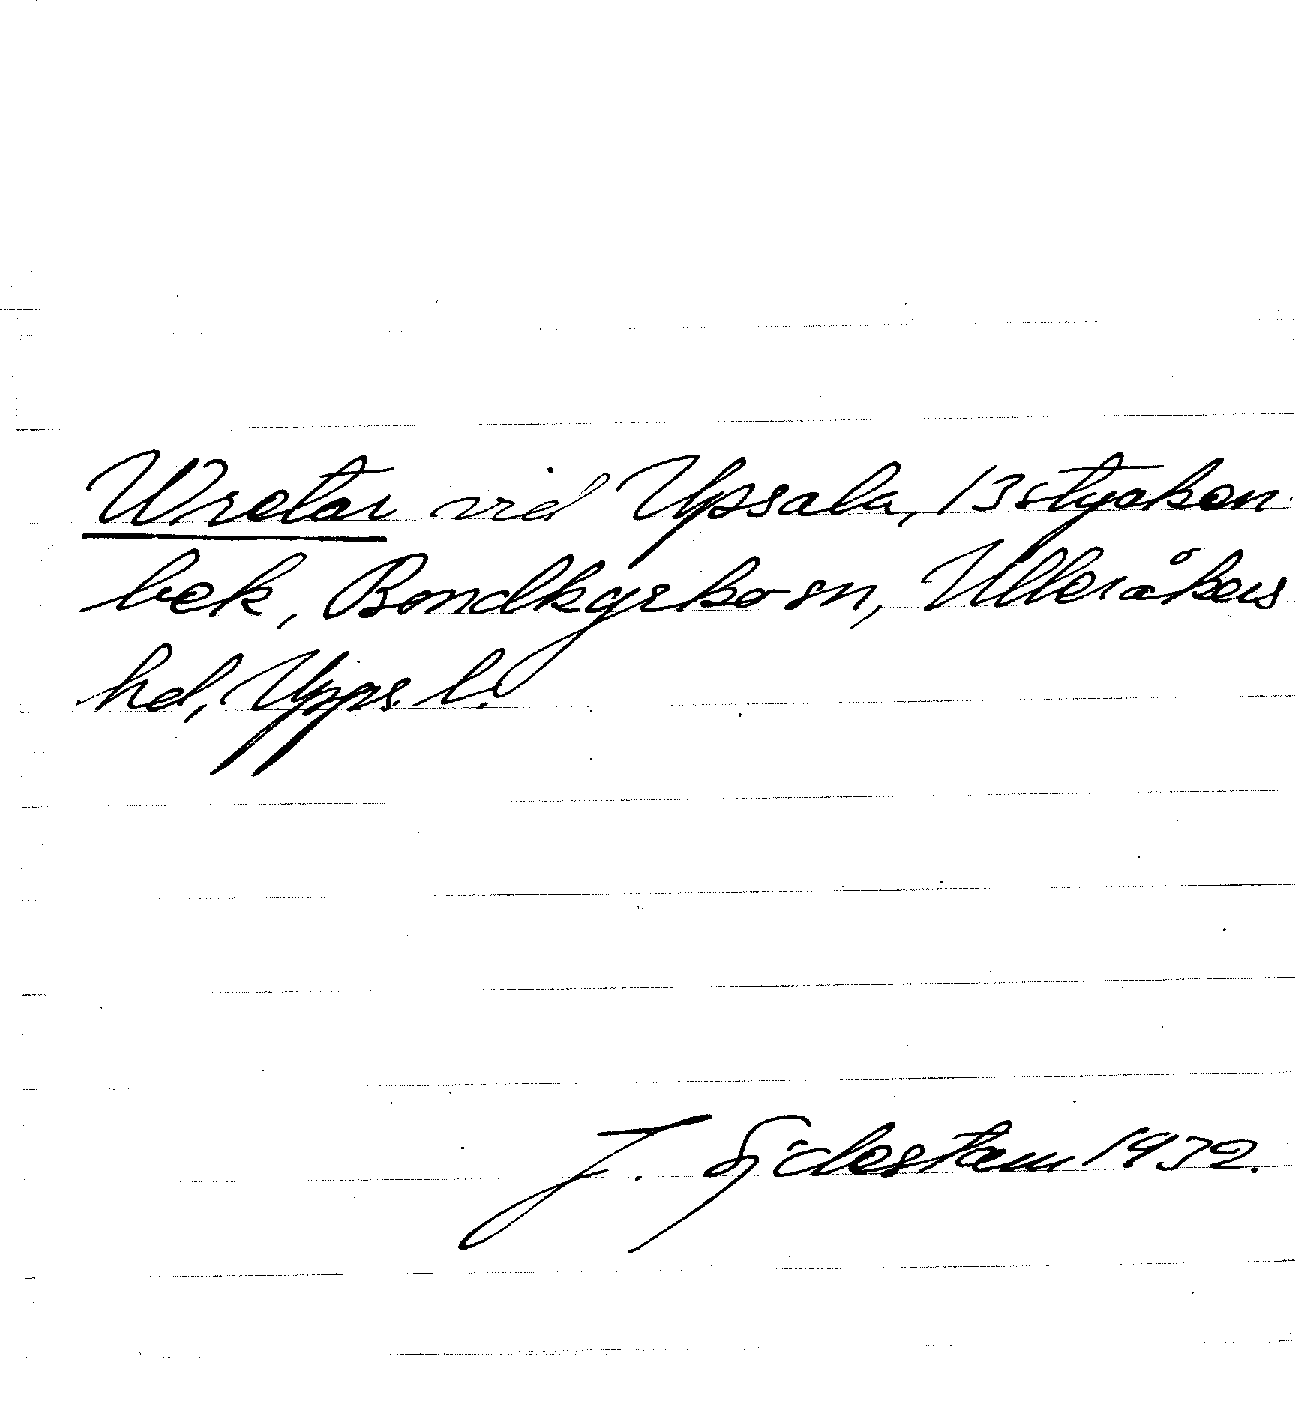 Wretar vid Upsala, 13 stycken
bek, Bondkyrko sn, Ulleråkers
hd, Upps. l.
J. Sjdestam 1932.